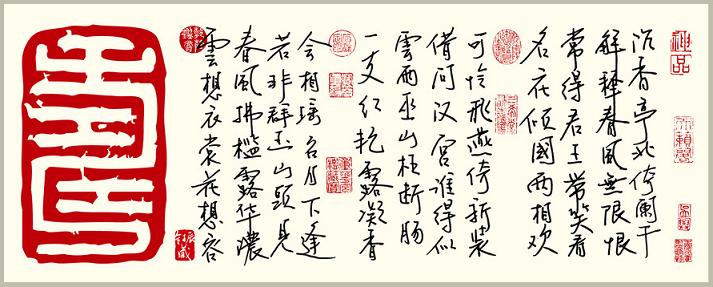 雲想衣裳花想容
春風拂檻露华濃
若非群玉山頭見
会相瑶台月下逢
一支红艳露凝香
雲雨巫山枉断肠
借问汉宫谁得似
可怜飛燕倚新装
名花倾國两相欢
常得君王带笑看
解释春風無限恨
沉香亭北倚阑干
神品